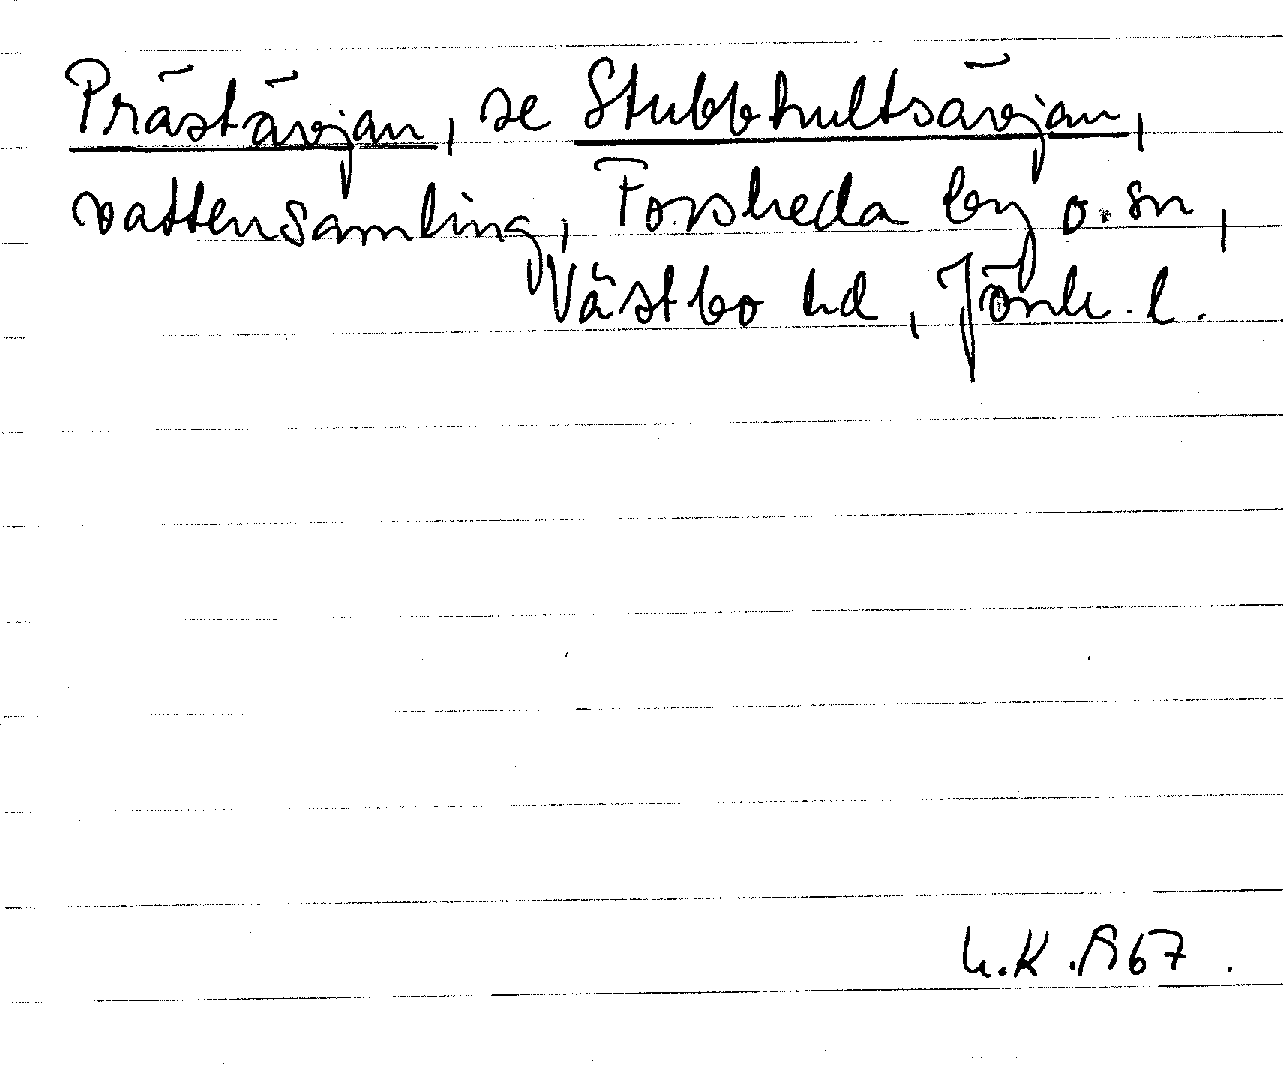 Prästävjan, se Stubbhultsävjan,
vattensamling, Forsheda by o. sn,
Västbo hd, Jönk. l.